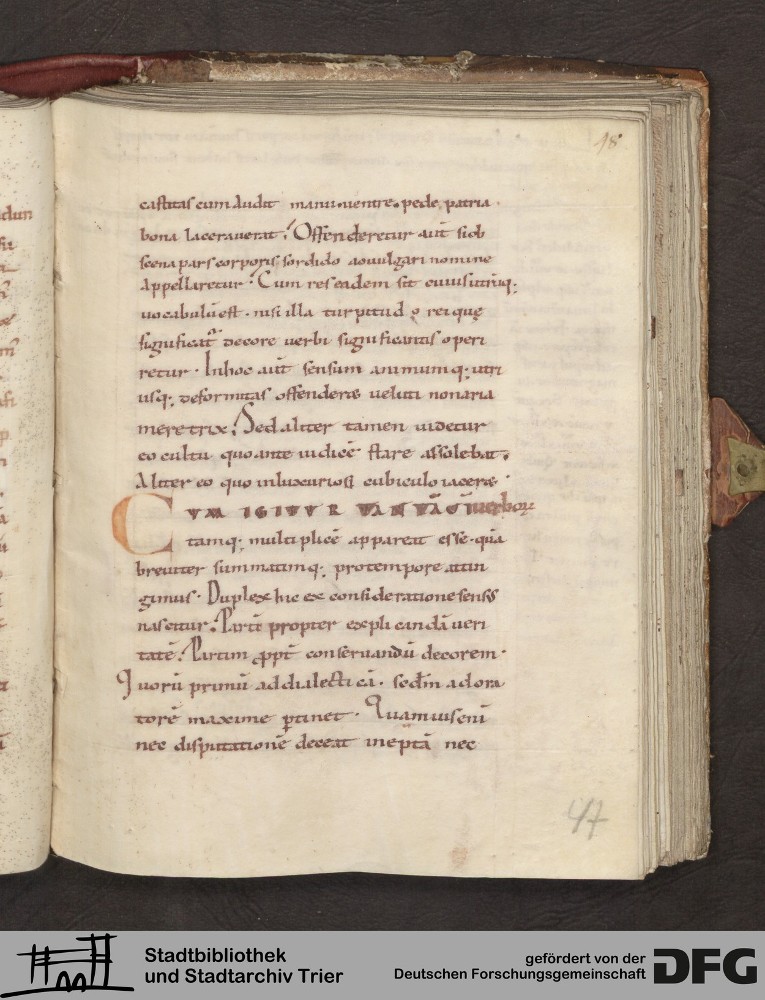 48
castitas cum audit manu. ventre. pede, patria.
bona laceraverat; Offenderetur aut̄ si ob
scena pars corporis sordido ac vulgari nomine
appellaretur. Cum res eadem sit cuius utriq;
vocabulū est. nisi illa turpitudo rei quę
significat̄ decore verbi significantis operi
retur. In hoc aut̄ sensum animumq; utri
usq; deformitas offenderet veluti nonaria
meretrix; Sed aliter tamen videtur
eo cultu quo ante iudicē stare assolebat.
Aliter eo quo in luxuriosi cubiculo iaceret.
CVM IGITVR TANTĀ VIM verborū
tamq; multiplicē apparent esse. quā
breviter summatimq; pro tempore attin
gimus. Duplex hic ex consideratione sensus
nascitur. Partī propter explicandā veri
tatē. Partim ꝓpt̄ conservandū decorem.
Quorū primū ad dialecticā. secdm̄ ad ora
torē maxime ꝑtinet. Quamvis enī
nec disputationē deceat ineptā nec
47
Stadtbibliothek
und Stadtarchiv Trier
gefördert von der
Deutschen Forschungsgemeinschaft
DFG